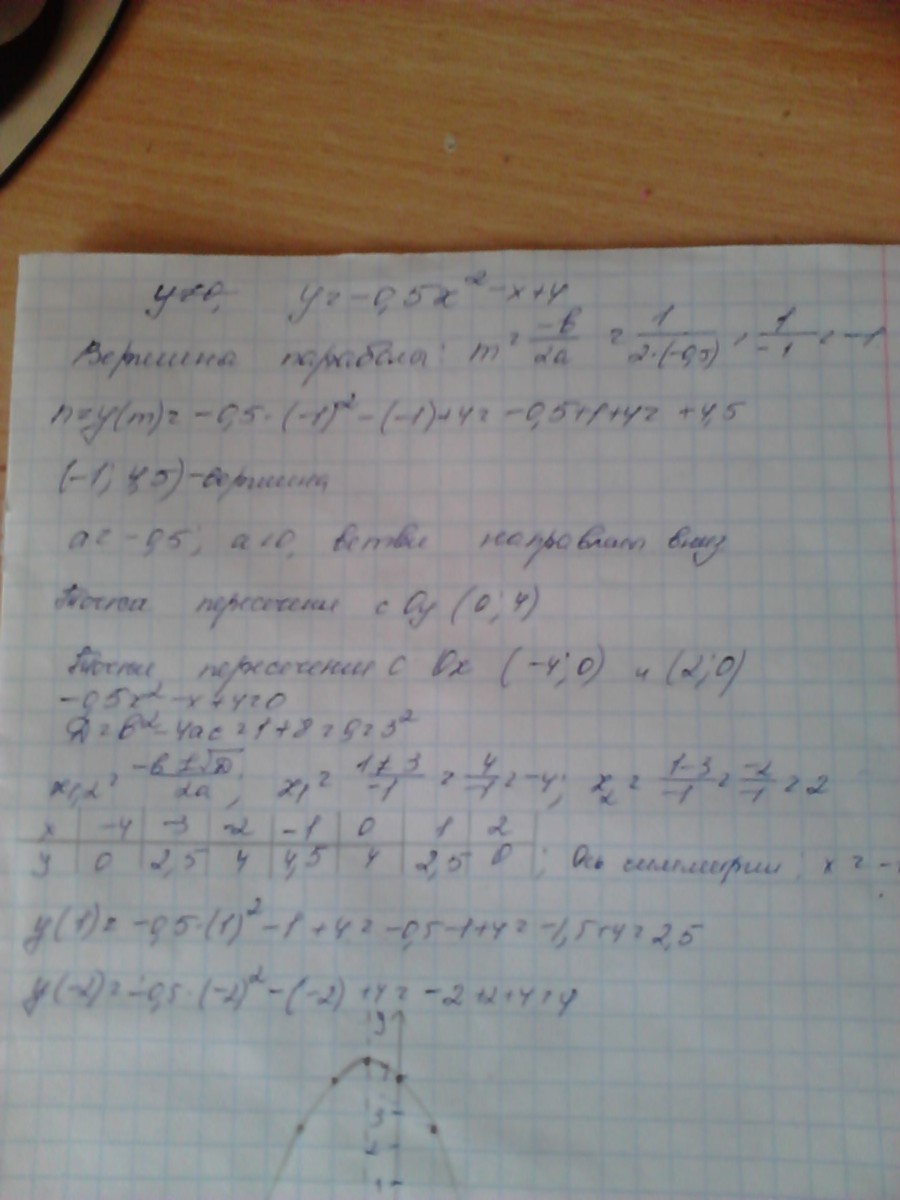 y = -0,5x² - x + 4
Вершина параболы: m = -b/2a = 1/2·(-0,5) = 1/-1 = -1
n = y(m) = -0,5·(-1)² - (-1) + 4 = -0,5 + 1 + 4 = +4,5
(-1; 4,5) - вершина
a = -0,5; a < 0, ветви направлены вниз
Точка пересечение с Oy (0; 4)
Точки пересечение с Ox (-4; 0) и (2; 0)
-0,5x² - x + 4 = 0
D = b² - 4ac = 1 + 8 = 9 = 3²
x₁,₂ = -b ± √D/2a; x₁ = 1+3/-1 = 4/-1 = -4; x₂ = 1-3/-1 = -2/-1 = 2
x -4 -3 -2 -1 0 1 2
y 0 2,5 4 4,5 4 2,5 0; Ось симметрии: x = -
y(1) = -0,5·(1)² - 1 + 4 = -0,5 - 1 + 4 = -1,5 + 4 = 2,5
y(-2) = -0,5·(-2)² - (-2) + 4 = -2 + 2 + 4 = 4
y
3
2
1